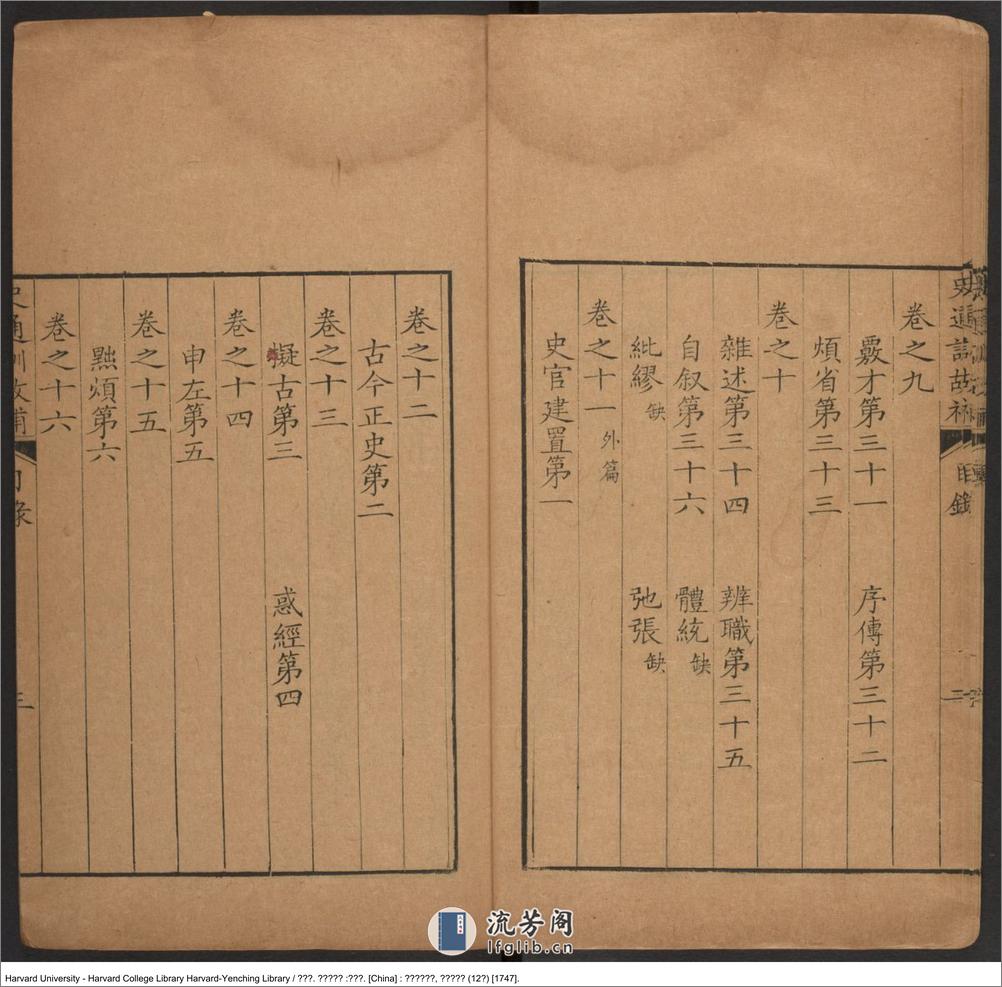 卷之九
覈才第三十一 序傳第三十二
煩省第三十三
卷之十
雜述第三十四 辨職第三十五
自叙第三十六 體統缺
紕繆缺 弛張缺
卷之十一 外篇
史官建置第一
目錄
卷之十二
古今正史第二
卷之十三
擬古第三 惑經第四
卷之十四
申左第五
卷之十五
㸃煩第六
卷之十六
史通訓故補 目錄 三
流芳阁
lfglib.cn
Harvard University - Harvard College Library Harvard-Yenching Library / ???. ????? :???. [China] : ??????, ????? (12?) [1747].